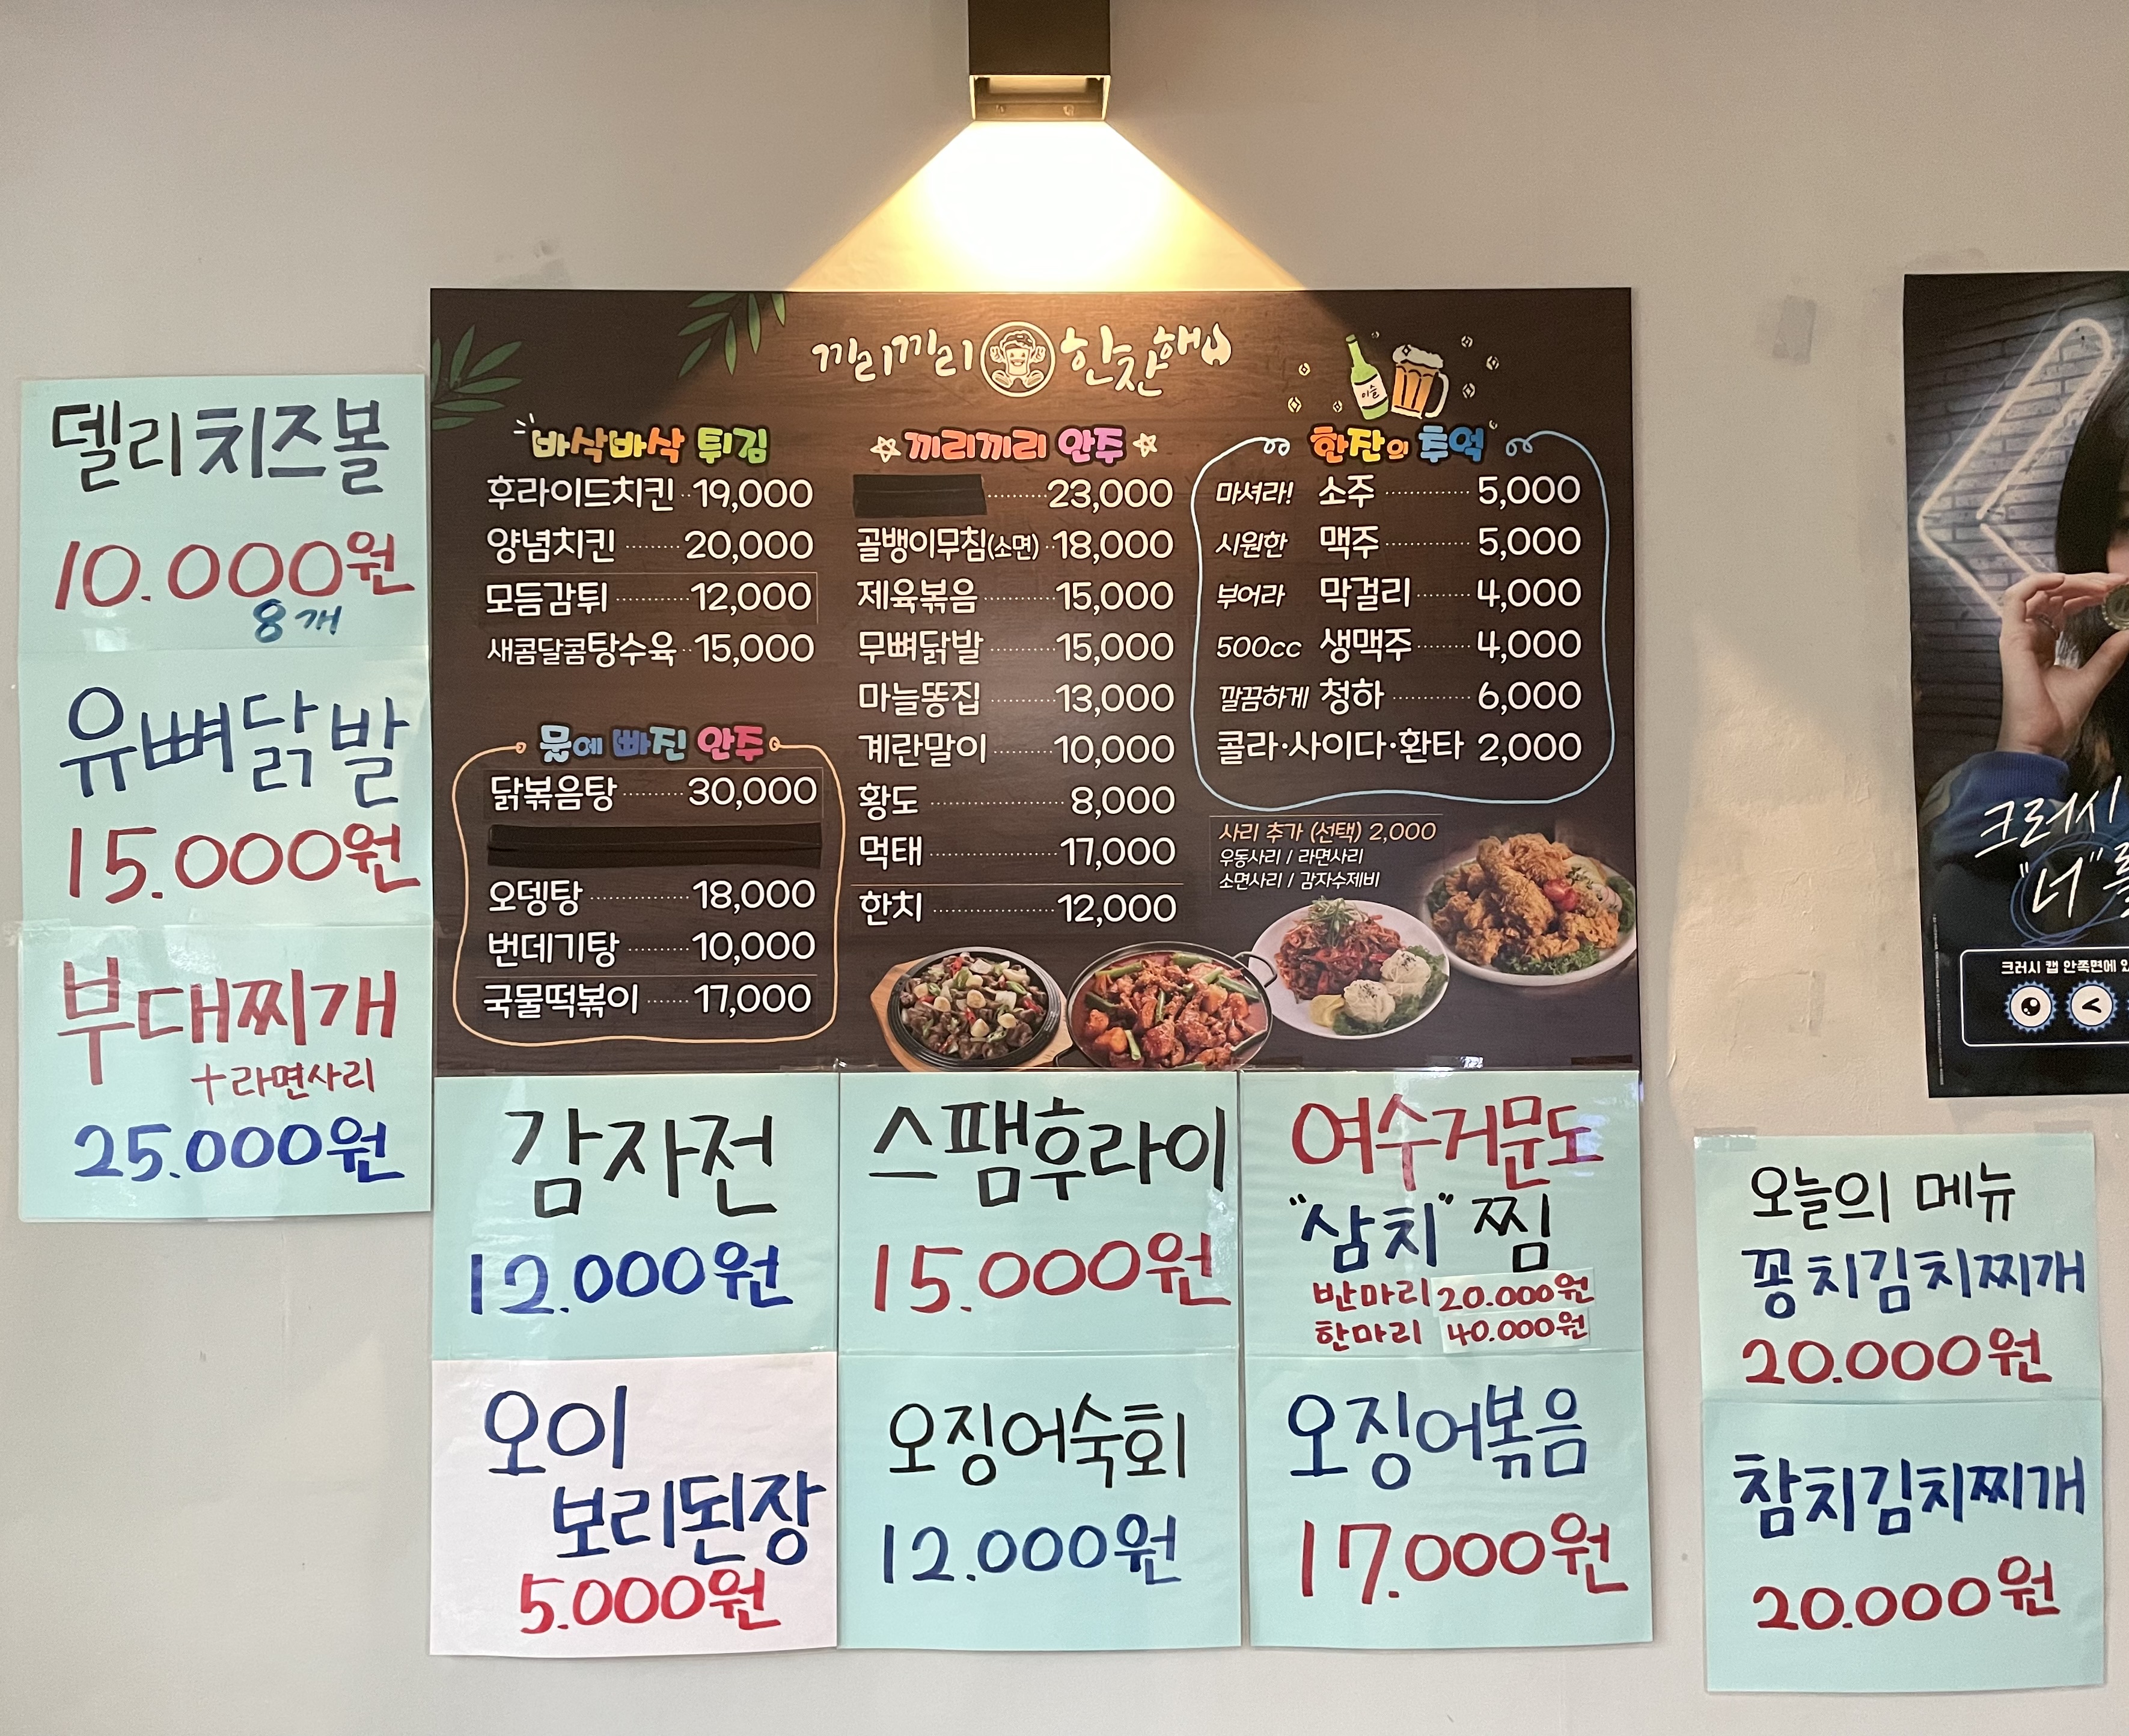 델리치즈볼
10.000원
8개
유뼈닭발
15.000원
부대찌개
+라면사리
25.000원
끼리끼리 한잔해
바삭바삭 튀김
후라이드치킨 19,000
양념치킨 20,000
모듬감튀 12,000
새콤달콤탕수육 15,000
물에 빠진 안주
닭볶음탕 30,000
오뎅탕 18,000
번데기탕 10,000
국물떡볶이 17,000
끼리끼리 안주
23,000
골뱅이무침(소면) 18,000
제육볶음 15,000
무뼈닭발 15,000
마늘똥집 13,000
계란말이 10,000
황도 8,000
먹태 17,000
한치 12,000
이슬
한잔의 추억
마셔라! 소주 5,000
시원한 맥주 5,000
부어라 막걸리 4,000
500cc 생맥주 4,000
깔끔하게 청하 6,000
콜라·사이다·환타 2,000
사리 추가 (선택) 2,000
우동사리 / 라면사리
소면사리 / 감자수제비
감자전
12.000원
스팸후라이
15.000원
여수거문도
"삼치"찜
반마리 20.000원
한마리 40.000원
오이
보리된장
5.000원
오징어숙회
12.000원
오징어볶음
17.000원
크러시
"너"를
크러시 캡 안쪽면에
오늘의 메뉴
꽁치김치찌개
20.000원
참치김치찌개
20.000원